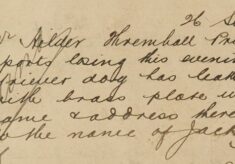 26 S
Mr Nilder Thremhall Pri
ports losing this evenin
rriever dog has leat
ith brass plate w
ame & address there
o the name of Jack